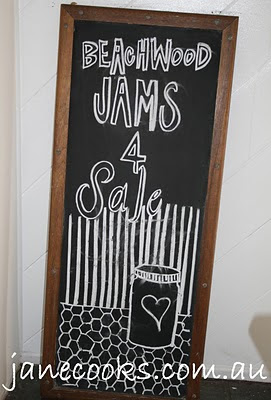 BEACHWOOD
JAMS
4
Sale
janecooks.com.au